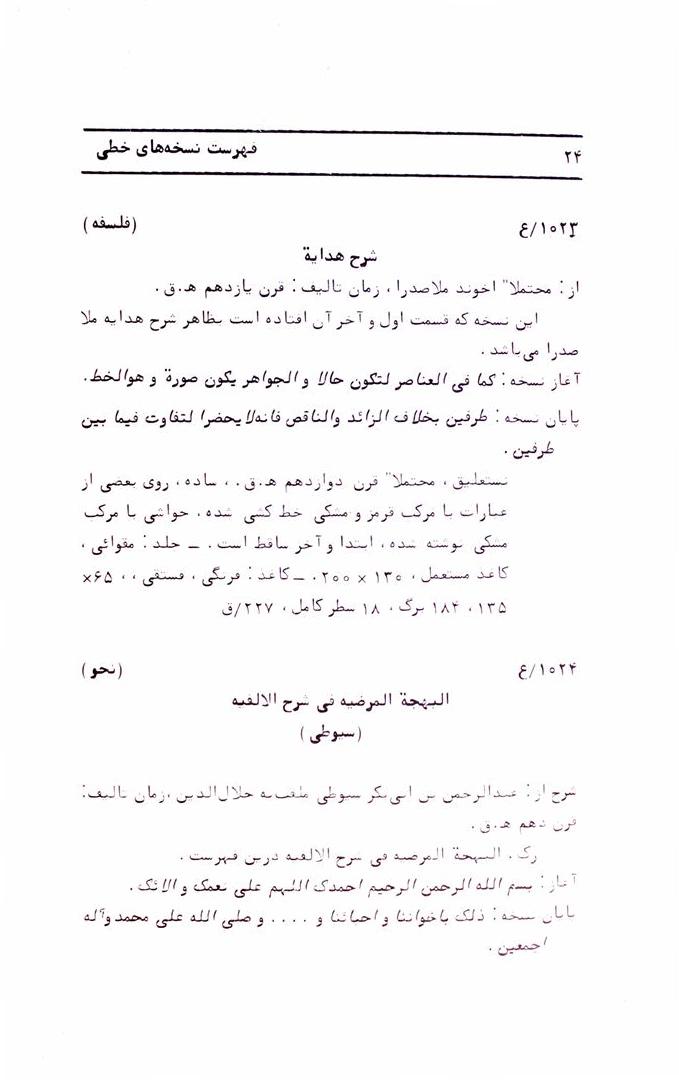 ۲۴ فهرست نسخه‌های خطی
۱۰۲۳/ع (فلسفه)
شرح هدایة
از: محتملا" اخوند ملاصدرا، زمان تالیف: قرن یازدهم ه.ق.
این نسخه که قسمت اول و آخر آن افتاده است بظاهر شرح هدایه ملا
صدرا می‌باشد.
آغاز نسخه: کما فی العناصر لتکون حالا و الجواهر یکون صورة و هوالخط.
پایان نسخه: طرفین بخلاف الزائد والناقص فانه‌لایحضرا لتفاوت فیما بین
طرفین.
نستعلیق، محتملا" قرن دوازدهم ه.ق.، ساده، روی بعضی از
عبارات با مرکب قرمز و مشکی خط کشی شده، حواشی با مرکب
مشکی نوشته شده، ابتدا و آخر ساقط است. ـ جلد: مقوائی،
کاغذ مستعمل، ۱۳۰ × ۲۰۰. ـ کاغذ: فرنگی، فستقی،، ۶۵×
۱۳۵، ۱۸۴ برگ، ۱۸ سطر کامل، ۲۲۷/ق
۱۰۲۴/ع (نحو)
البهجة المرضیه فی شرح الالفیه
(سیوطی)
شرح از: عبدالرحمن بن ابی‌بکر سیوطی ملقب‌به جلال‌الدین، زمان تالیف:
قرن دهم ه.ق.
رک. البهجة المرضیه فی شرح الالفیه درین فهرست.
آغاز: بسم الله الرحمن الرحیم احمدک اللهم علی نعمک و الائک.
پایان نسخه: ذلک باخواننا و احبائنا و .... و صلی الله علی محمد وآله
اجمعین.